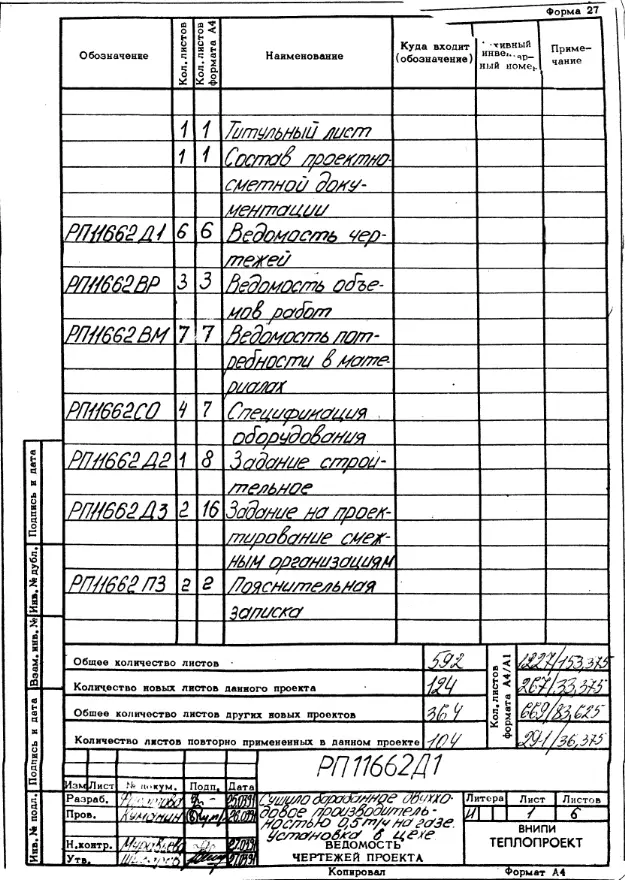 Форма 27
Обозначение Кол.листов Кол.листов формата А4 Наименование Куда входит (обозначение) Приме-чание
1 1 Титульный лист
1 1 Состав проектно-
сметной доку-
ментации
РП11662Д1 6 6 Ведомость чер-
тежей
РП11662ВР 3 3 Ведомость объе-
мов работ
РП11662ВМ 7 7 Ведомость пот-
ребности в мате-
риалах
РП11662СО 4 7 Спецификация
оборудования
РП11662Д2 1 8 Задание строи-
тельное
РП11662Д3 2 16 Задание на проек-
тирование смеж-
ным организациям
РП11662ПЗ 2 2 Пояснительная
записка
Общее количество листов 592 Кол.листов формата А4/А1 1227/153,375
Количество новых листов данного проекта 124 267/33,375
Общее количество листов других новых проектов 364 669/83,625
Количество листов повторно примененных в данном проекте 104 291/36,375
РП11662Д1
Изм Лист № докум. Подп. Дата
Разраб.
Пров.
Н.контр.
Утв.
Сушило барабанное двухходовое производитель-
ностью 0,5 т/ч на газе.
Установка в цехе
ВЕДОМОСТЬ
ЧЕРТЕЖЕЙ ПРОЕКТА
Литера Лист Листов
И 1 6
ВНИПИ
ТЕПЛОПРОЕКТ
Копировал Формат А4
Подпись и дата
Инв. № дубл.
Взам. инв. №
Подпись и дата
Инв. № подл.